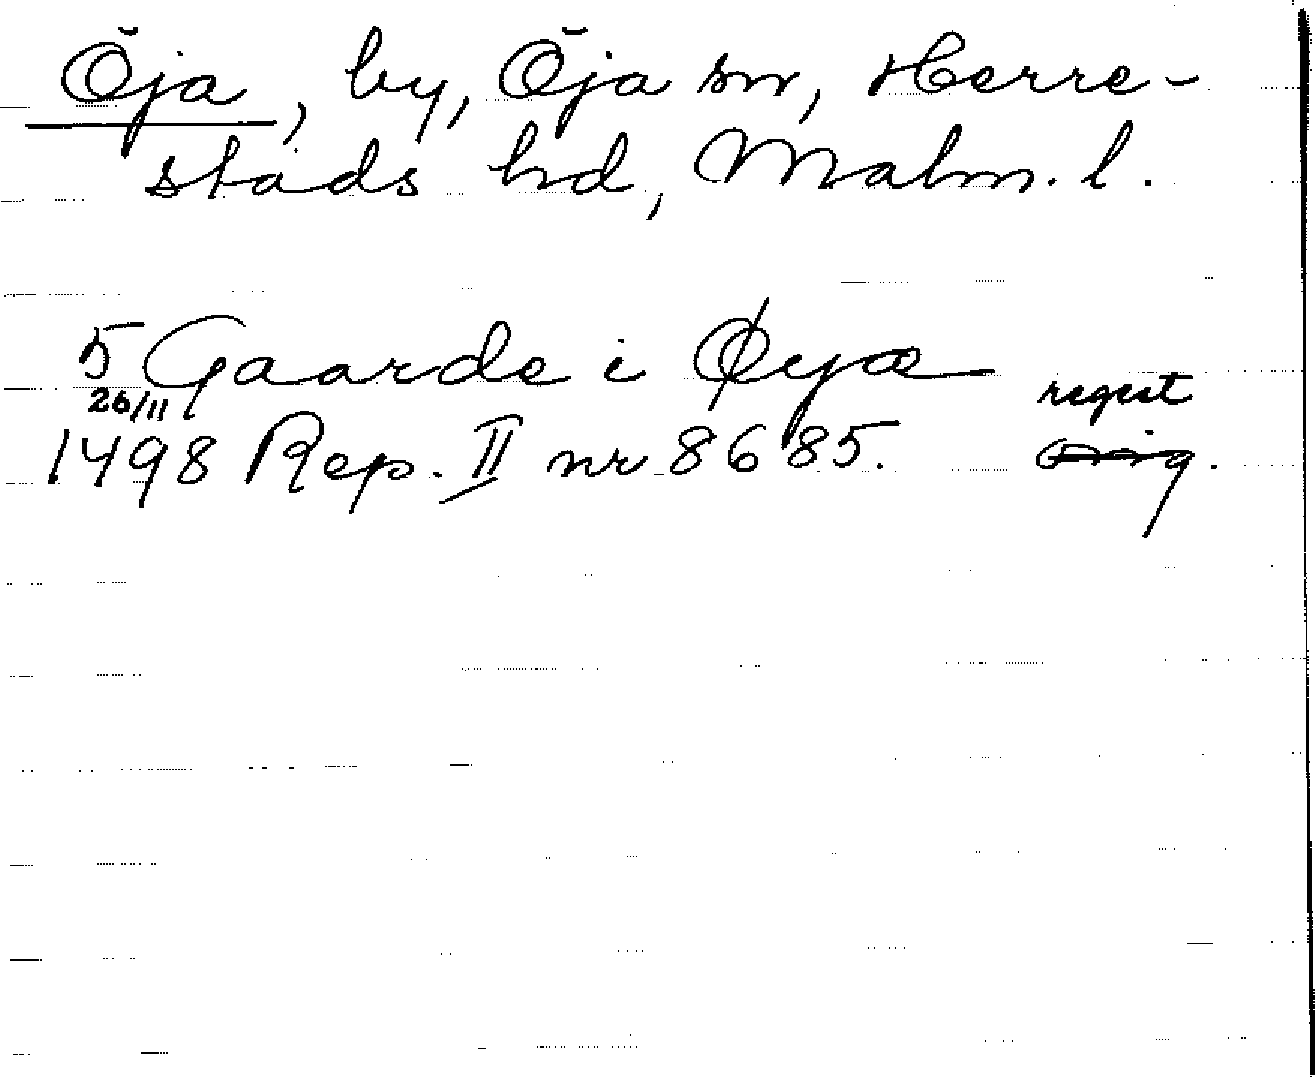 Öja, by, Öja sn, Herre-
stads hd, Malm. l.
5 Gaarde i Øyæ
26/11 regest
1498 Rep. II nr 8685. orig.